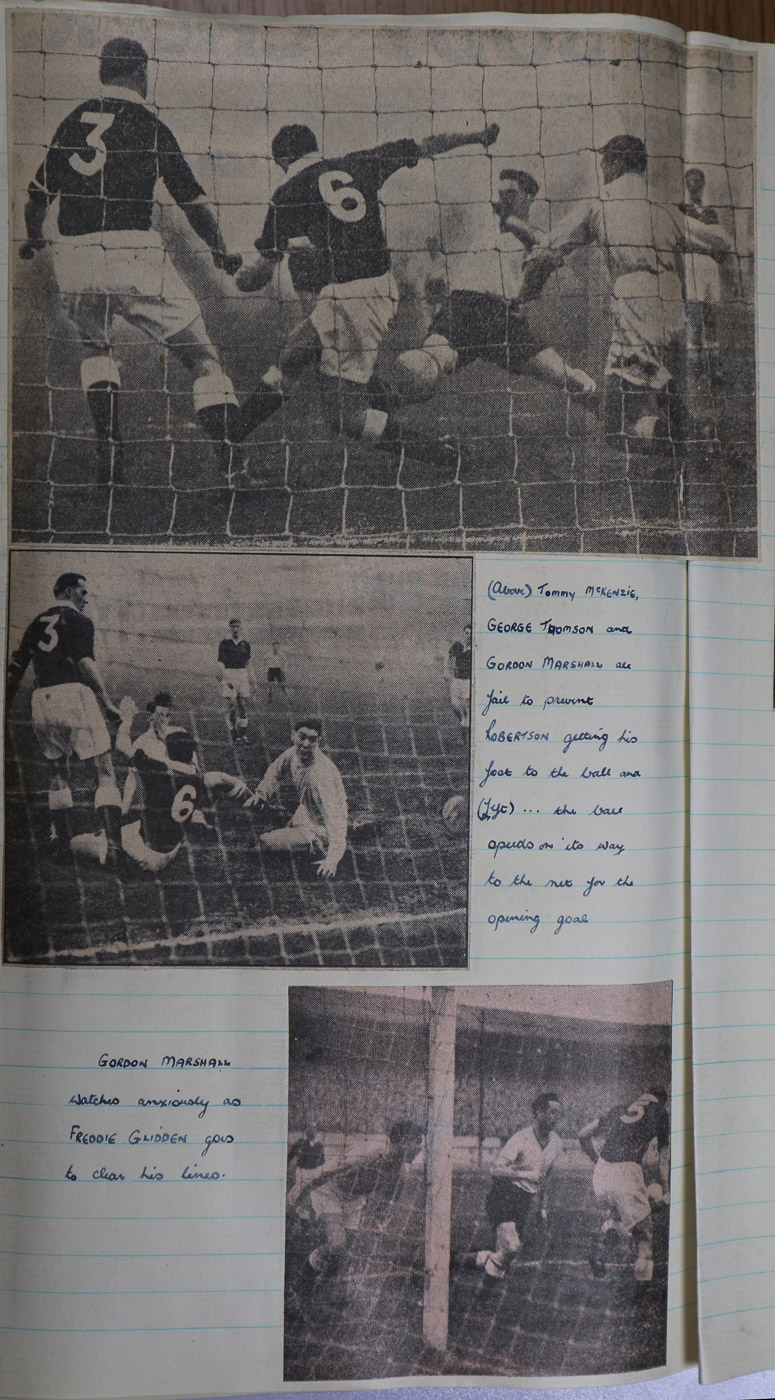 3
6
3
6
(Above) Tommy McKENZIE,
GEORGE THOMSON and
GORDON MARSHALL all
fail to prevent
ROBERTSON getting his
foot to the ball and
(Left) ... the ball
speeds on its way
to the net for the
opening goal
GORDON MARSHALL
watches anxiously as
FREDDIE GLIDDEN goes
to clear his lines.
5